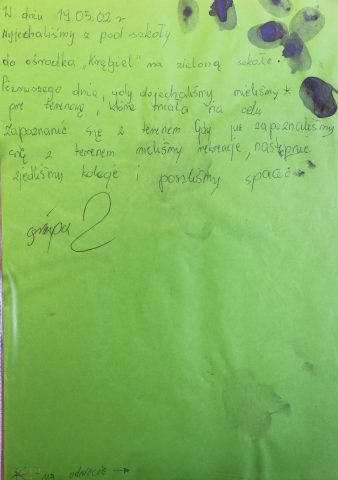 W dniu 19.05.02 r
wyjechaliśmy z pod szkoły
do ośrodka „Kręgiel" na zieloną szkołe.
Pierwszego dnia, gdy dojechaliśmy mieliśmy *
gre terenową, które miała na celu
zapoznanić się z terenem Gdy już zapoznaliśmy
się z terenem mieliśmy rekreacje, następnie
zjedliśmy kolacje i poszliśmy spać
grupa 2
* na odwrocie →